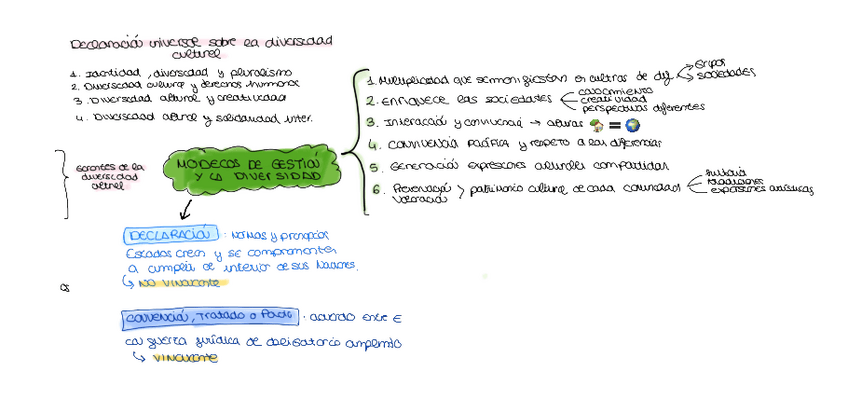 Declaración universal sobre la diversidad
cultural
1. Identidad, diversidad y pluralismo
2. Diversidad cultural y derechos humanos
3. Diversidad cultural y creatividad
4. Diversidad cultural y solidaridad inter.
Garantes de la
diversidad
cultural
MODELOS DE GESTIÓN
Y LA DIVERSIDAD
1. Multiplicidad que se manifiestan en culturas de dif
grupos
sociedades
2. Enriquece las sociedades
conocimiento
creatividad
perspectivas diferentes
3. Interacción y convivencia → culturas 🏠 = 🌍
4. Convivencia pacífica y respeto a las diferencias
5. Generación expresiones culturales compartidas
6. Preservación
Valoración
> patrimonio cultural de cada comunidad
tradiciones
expresiones artísticas
DECLARACIÓN : Normas y principios
Estados creen y se comprometen
a cumplir de interior de sus naciones.
↳ NO VINCULANTE
Convención, Tratado o Pacto · acuerdo entre E
con fuerza jurídica de obligatorio cumplimiento
↳ VINCULANTE